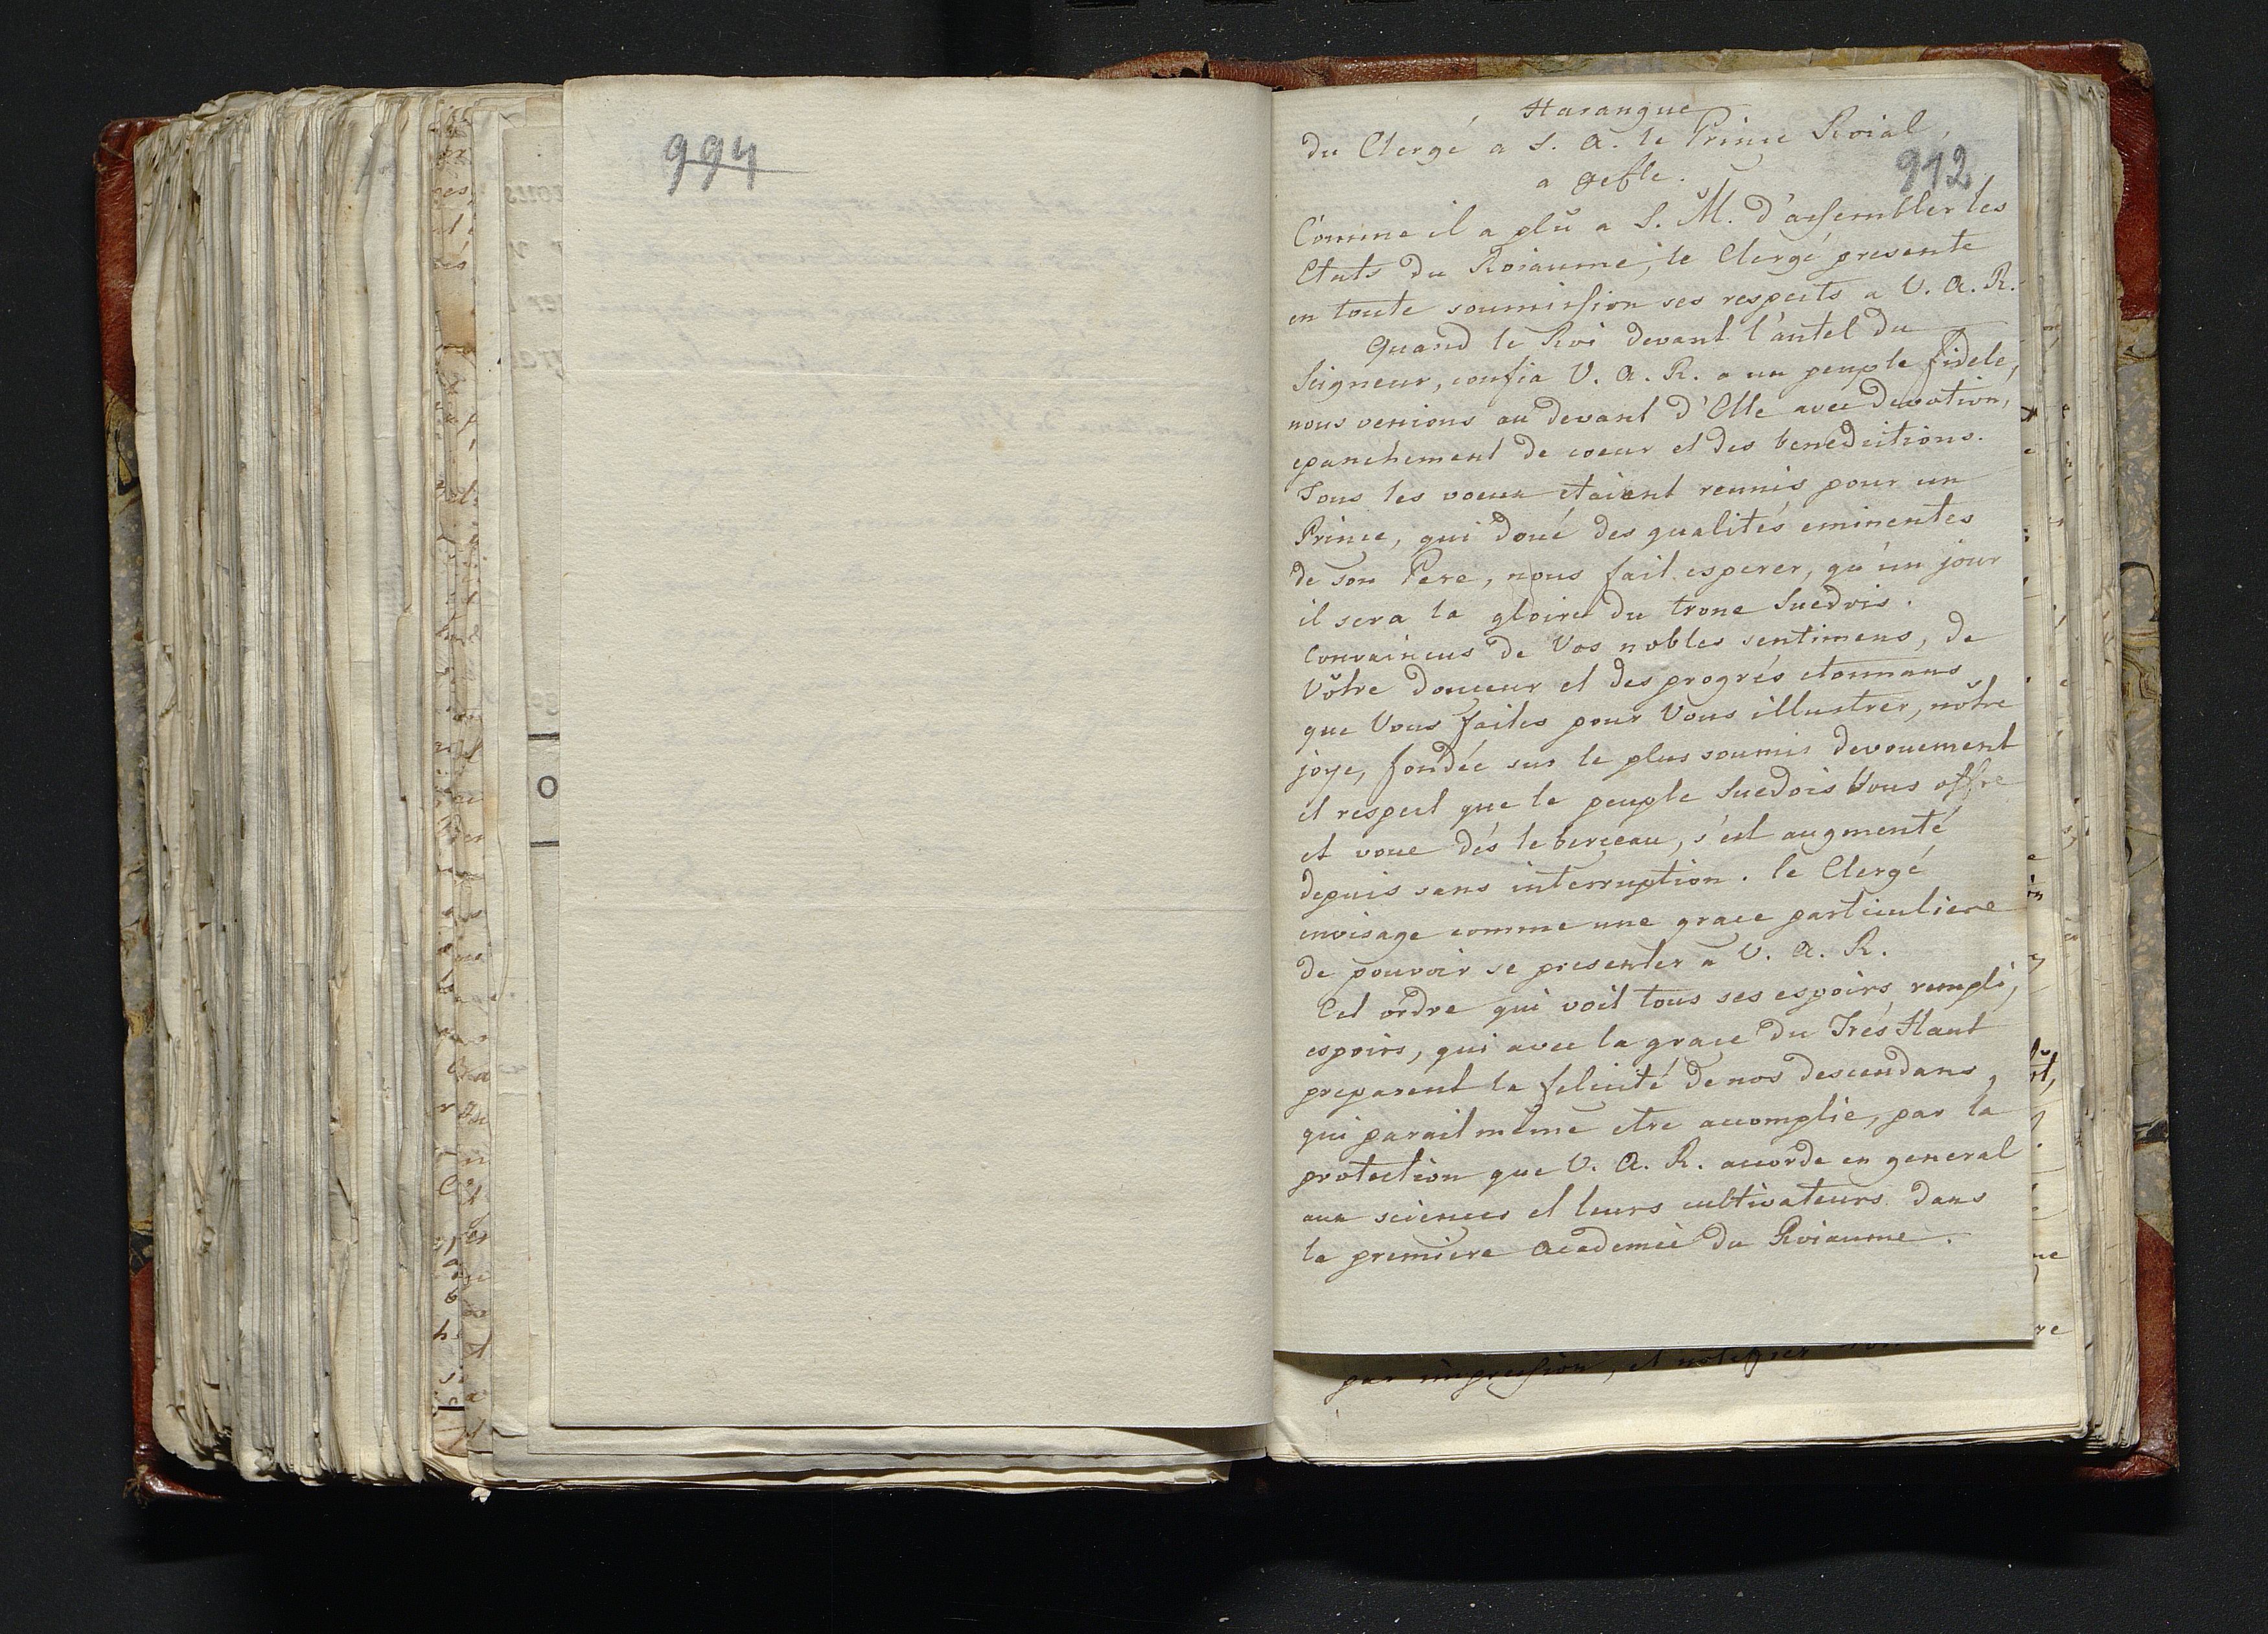 994
Harangue
du Clergé a S. A. le Prince Roial
a Gefle.
912
Comme il a plŭ a S. M. d'assembler les
Etats du Roiaume, le Clergé presente
en toute soumission ses respects a V. A. R.
Quand le Roi devant l'autel du
Seigneur, confia V. A. R. a un peuple fidele,
nous venions au devant d'Elle avec devotion,
epanchement de coeur et des benedictions.
Tous les voeux etaient reunis pour un
Prince, qui doué des qualités eminentes
de son Pere, nous fait esperer, qu'un jour
il sera la gloire du trone Suedois.
Convaincus de Vos nobles sentimens, de
Vŏtre douceur et des progrés etonnans
que Vous faites pour Vous illustrer, nŏtre
joye, fondée sur le plus soumis devouement
et respect que le peuple Suedois Vous offre
et voue dés le berceau, s'est augmenté
depuis sans interruption. le Clergé
envisage comme une grace particuliere
de pouvoir se presenter a V. A. R.
Cet ordre qui voit tous ses espoirs rempli,
espoirs, qui avec la grace du Trés Haut
preparent la felicité de nos descendans,
qui parait même etre accomplie, par la
protection que V. A. R. accorde en general
aux sciences et leurs cultivateurs dans
la premiere Academie du Roiaume.
par impression, et